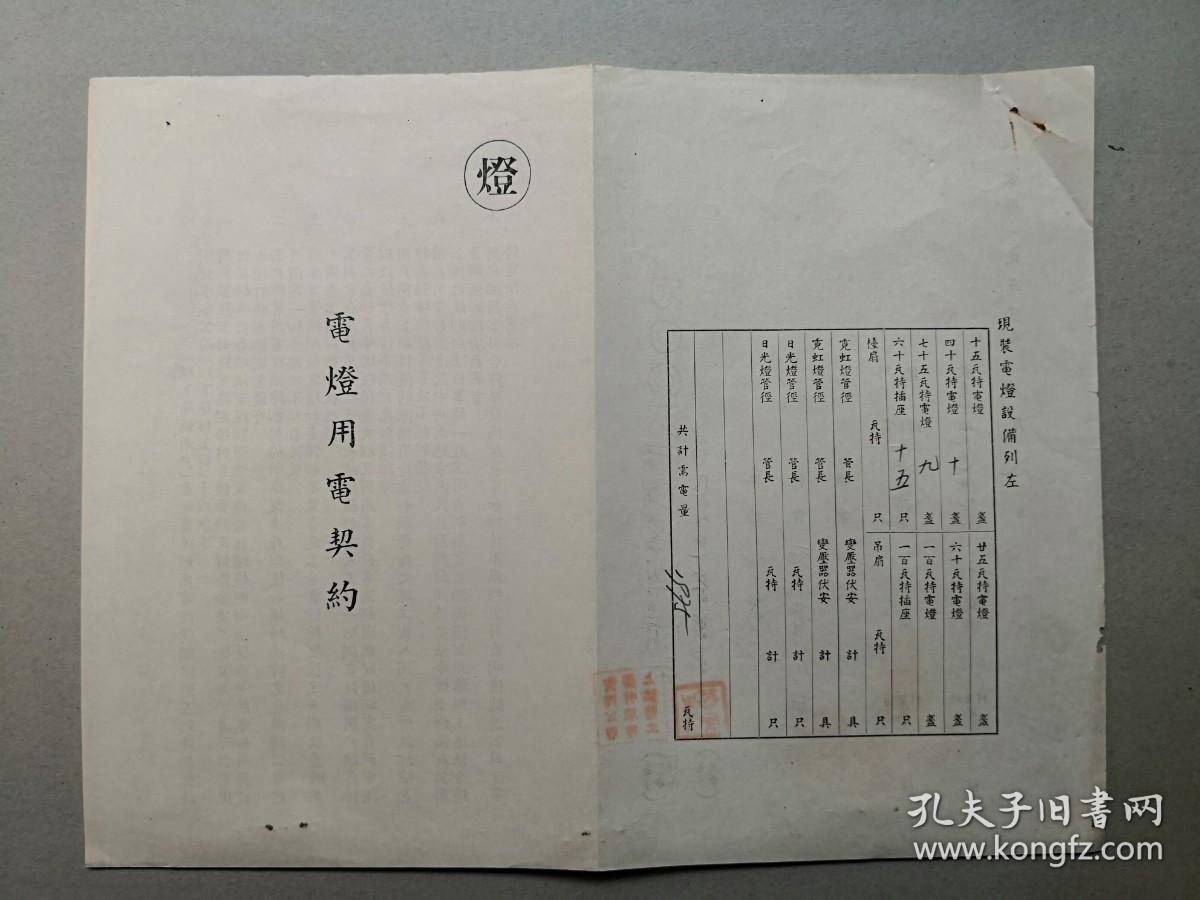 現裝電燈設備列左
十五瓦特電燈 盞 廿五瓦特電燈 盞
四十瓦特電燈 十 盞 六十瓦特電燈 盞
七十五瓦特電燈 九 盞 一百瓦特電燈 盞
六十瓦特插座 十五 只 一百瓦特插座 只
檯扇 瓦特 只 吊扇 瓦特 只
霓虹燈管徑 管長 變壓器伏安 計 具
霓虹燈管徑 管長 變壓器伏安 計 具
日光燈管徑 管長 瓦特 計 只
日光燈管徑 管長 瓦特 計 只
共計需電量 1975 瓦特
燈
電燈用電契約
孔夫子旧书网
www.kongfz.com